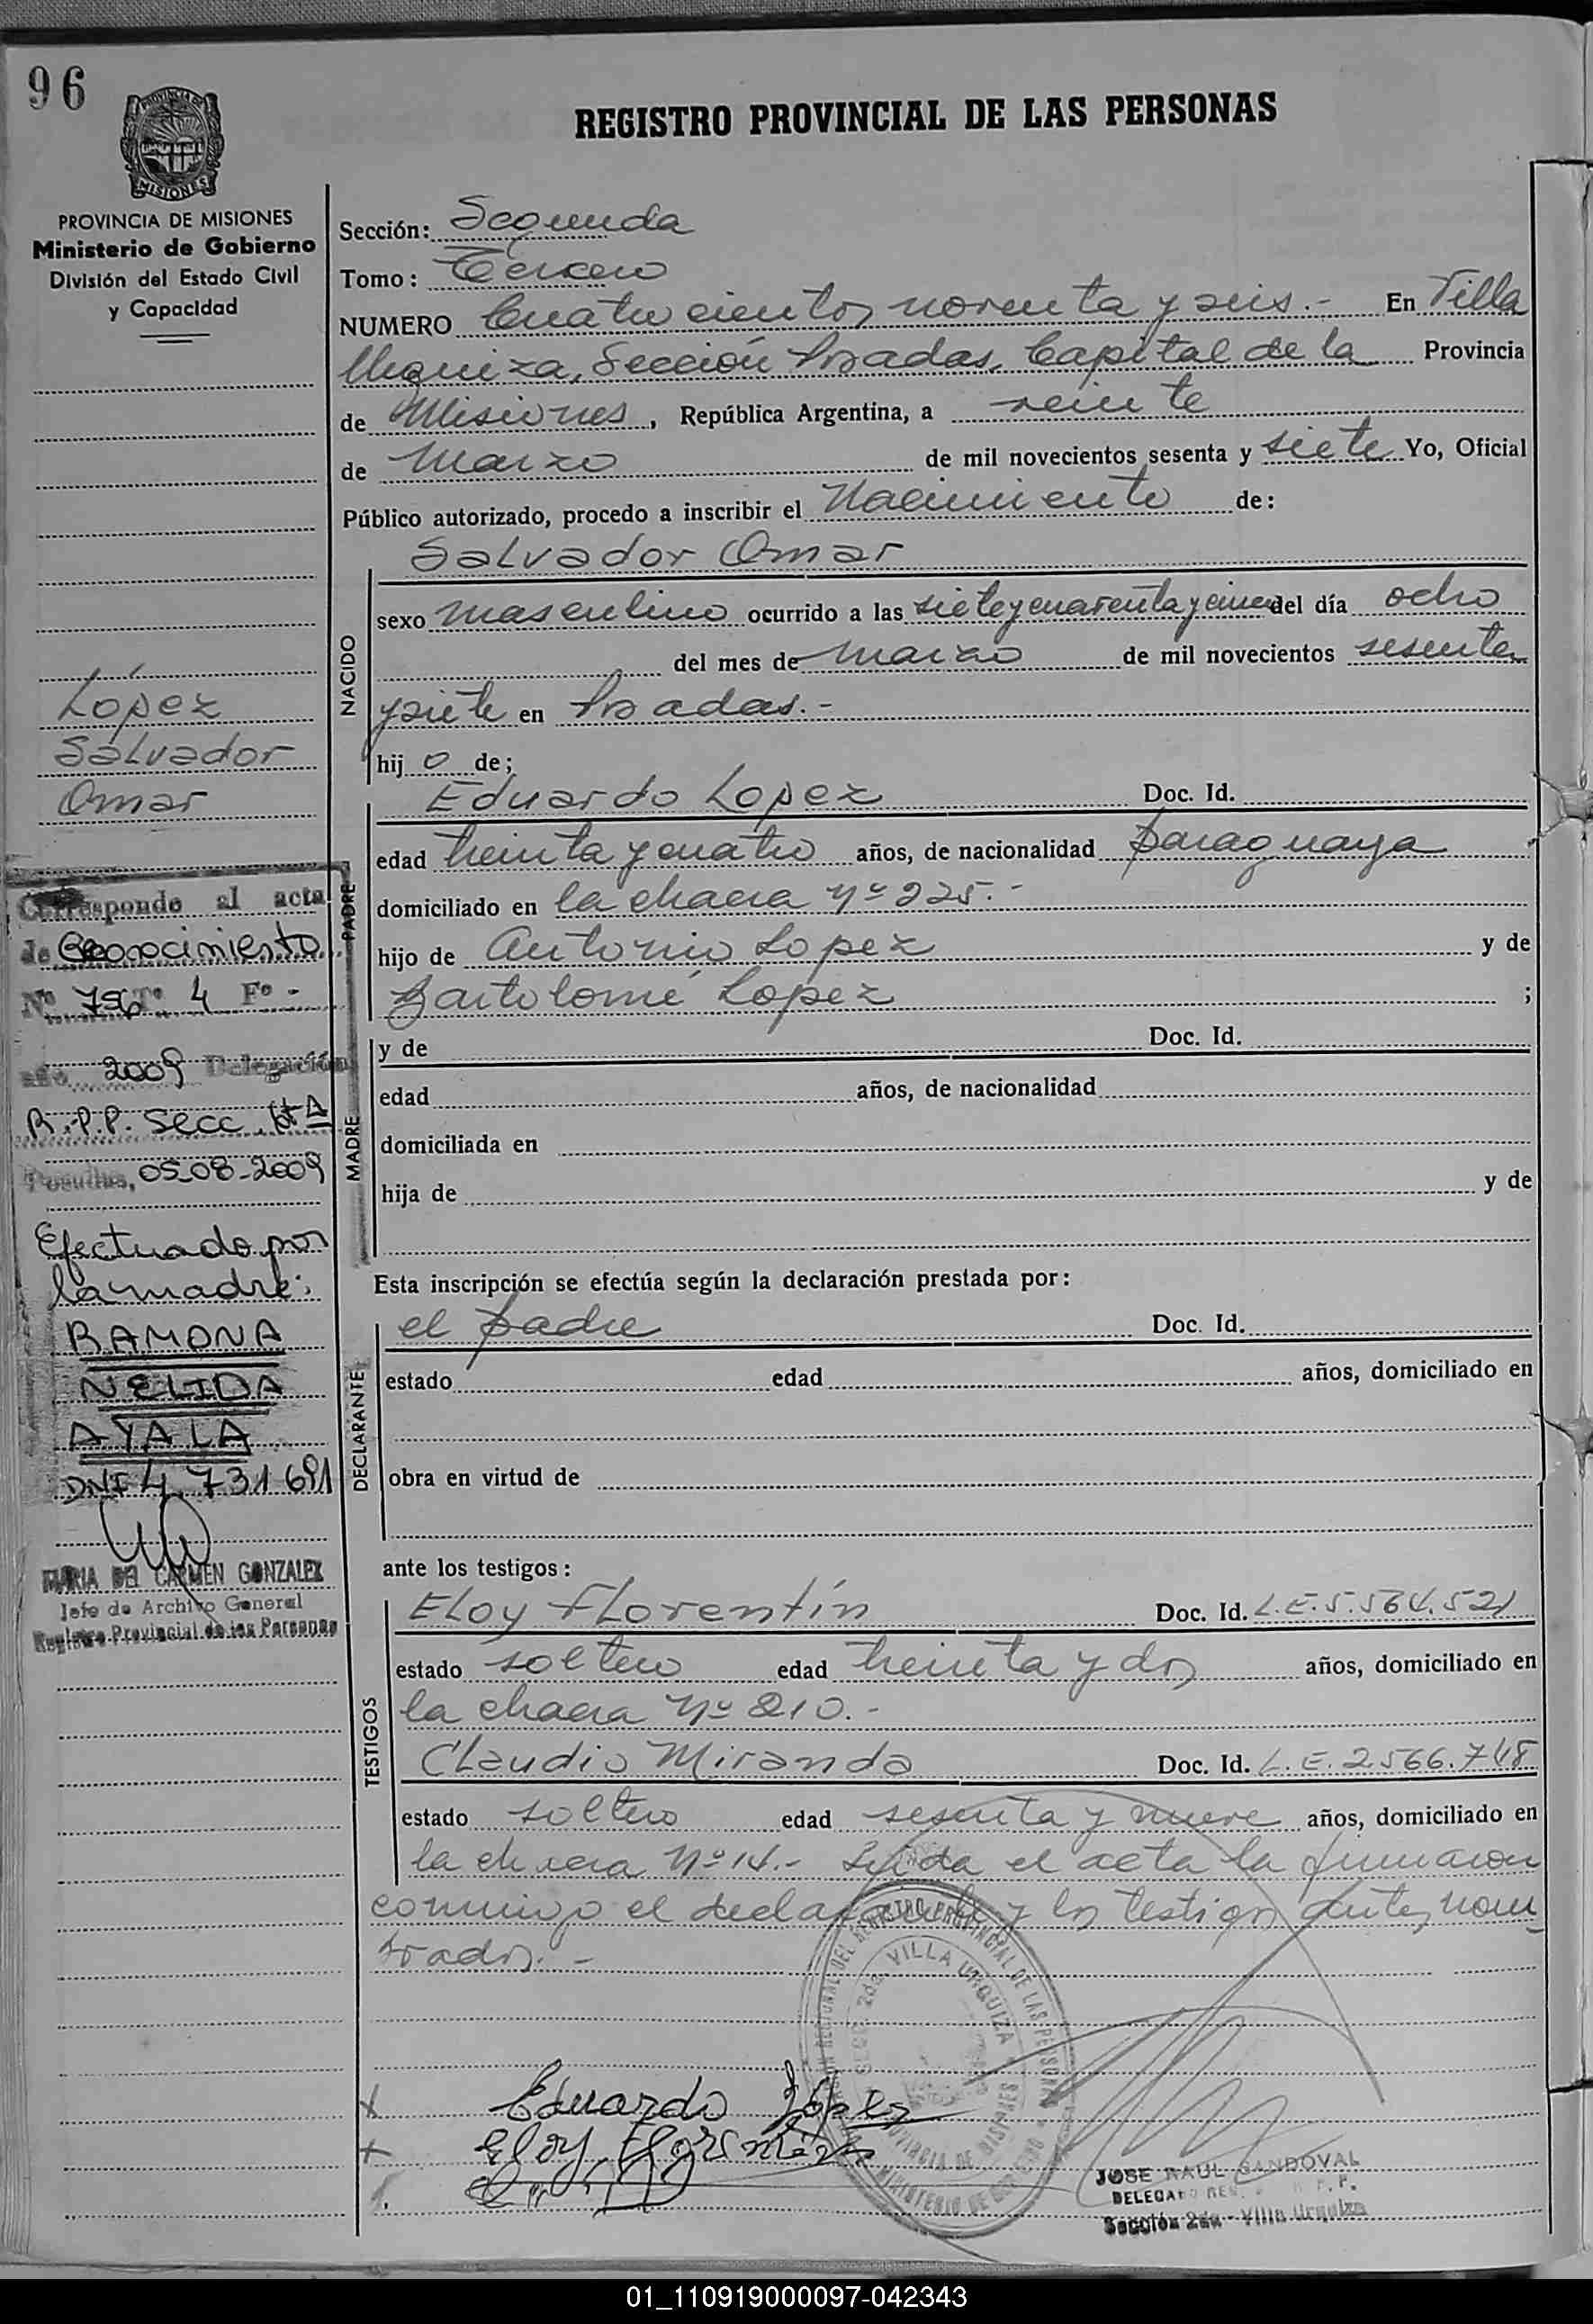 96
PROVINCIA DE
MISIONES
PROVINCIA DE MISIONES
Ministerio de Gobierno
División del Estado Civil
y Capacidad
López
Salvador
Omar
Corresponde al acta
de Reconocimiento
Nº 796 Tº 4 Fº -
año 2009 Delegación
R.P.P. Secc.
Posadas, 05-08-2009
Efectuado por
la madre:
RAMONA
NELIDA
AYALA
DNI 4.731691
MARIA DEL CARMEN GONZALEZ
Jefe de Archivo General
Registro Provincial de las Personas
REGISTRO PROVINCIAL DE LAS PERSONAS
Sección: Segunda
Tomo: Tercero
NUMERO Cuatrocientos noventa y seis.- En Villa
Urquiza, Sección Posadas, Capital de la Provincia
de Misiones, República Argentina, a veinte
de Marzo de mil novecientos sesenta y siete Yo, Oficial
Público autorizado, procedo a inscribir el Nacimiento de:
NACIDO
Salvador Omar
sexo masculino ocurrido a las siete y cuarenta y cinco del día ocho
del mes de marzo de mil novecientos sesenta
y siete en Posadas.-
hij o de;
PADRE
Eduardo Lopez Doc. Id.
edad treinta y cuatro años, de nacionalidad paraguaya
domiciliado en la chacra Nº 225.-
hijo de Antonio Lopez y de
Bartolomé Lopez ;
MADRE
y de Doc. Id.
edad años, de nacionalidad
domiciliada en
hija de y de
Esta inscripción se efectúa según la declaración prestada por:
DECLARANTE
el padre Doc. Id.
estado edad años, domiciliado en
obra en virtud de
ante los testigos:
TESTIGOS
Eloy Florentín Doc. Id. L.E. 5.564.521
estado soltero edad treinta y dos años, domiciliado en
la chacra Nº 210.-
Claudio Miranda Doc. Id. L.E. 2.566.748
estado soltero edad sesenta y nueve años, domiciliado en
la chacra Nº 14.- Leída el acta la firmaron
conmigo el declarante y los testigos antes nom
brados.-
SECC. 2da. VILLA URQUIZA
PROVINCIA DE MISIONES
MINISTERIO DE GOBIERNO
Eduardo López
Eloy Florentín
JOSE RAUL SANDOVAL
DELEGADO REG. R. P. P.
Sección 2da - Villa Urquiza
01_110919000097-042343